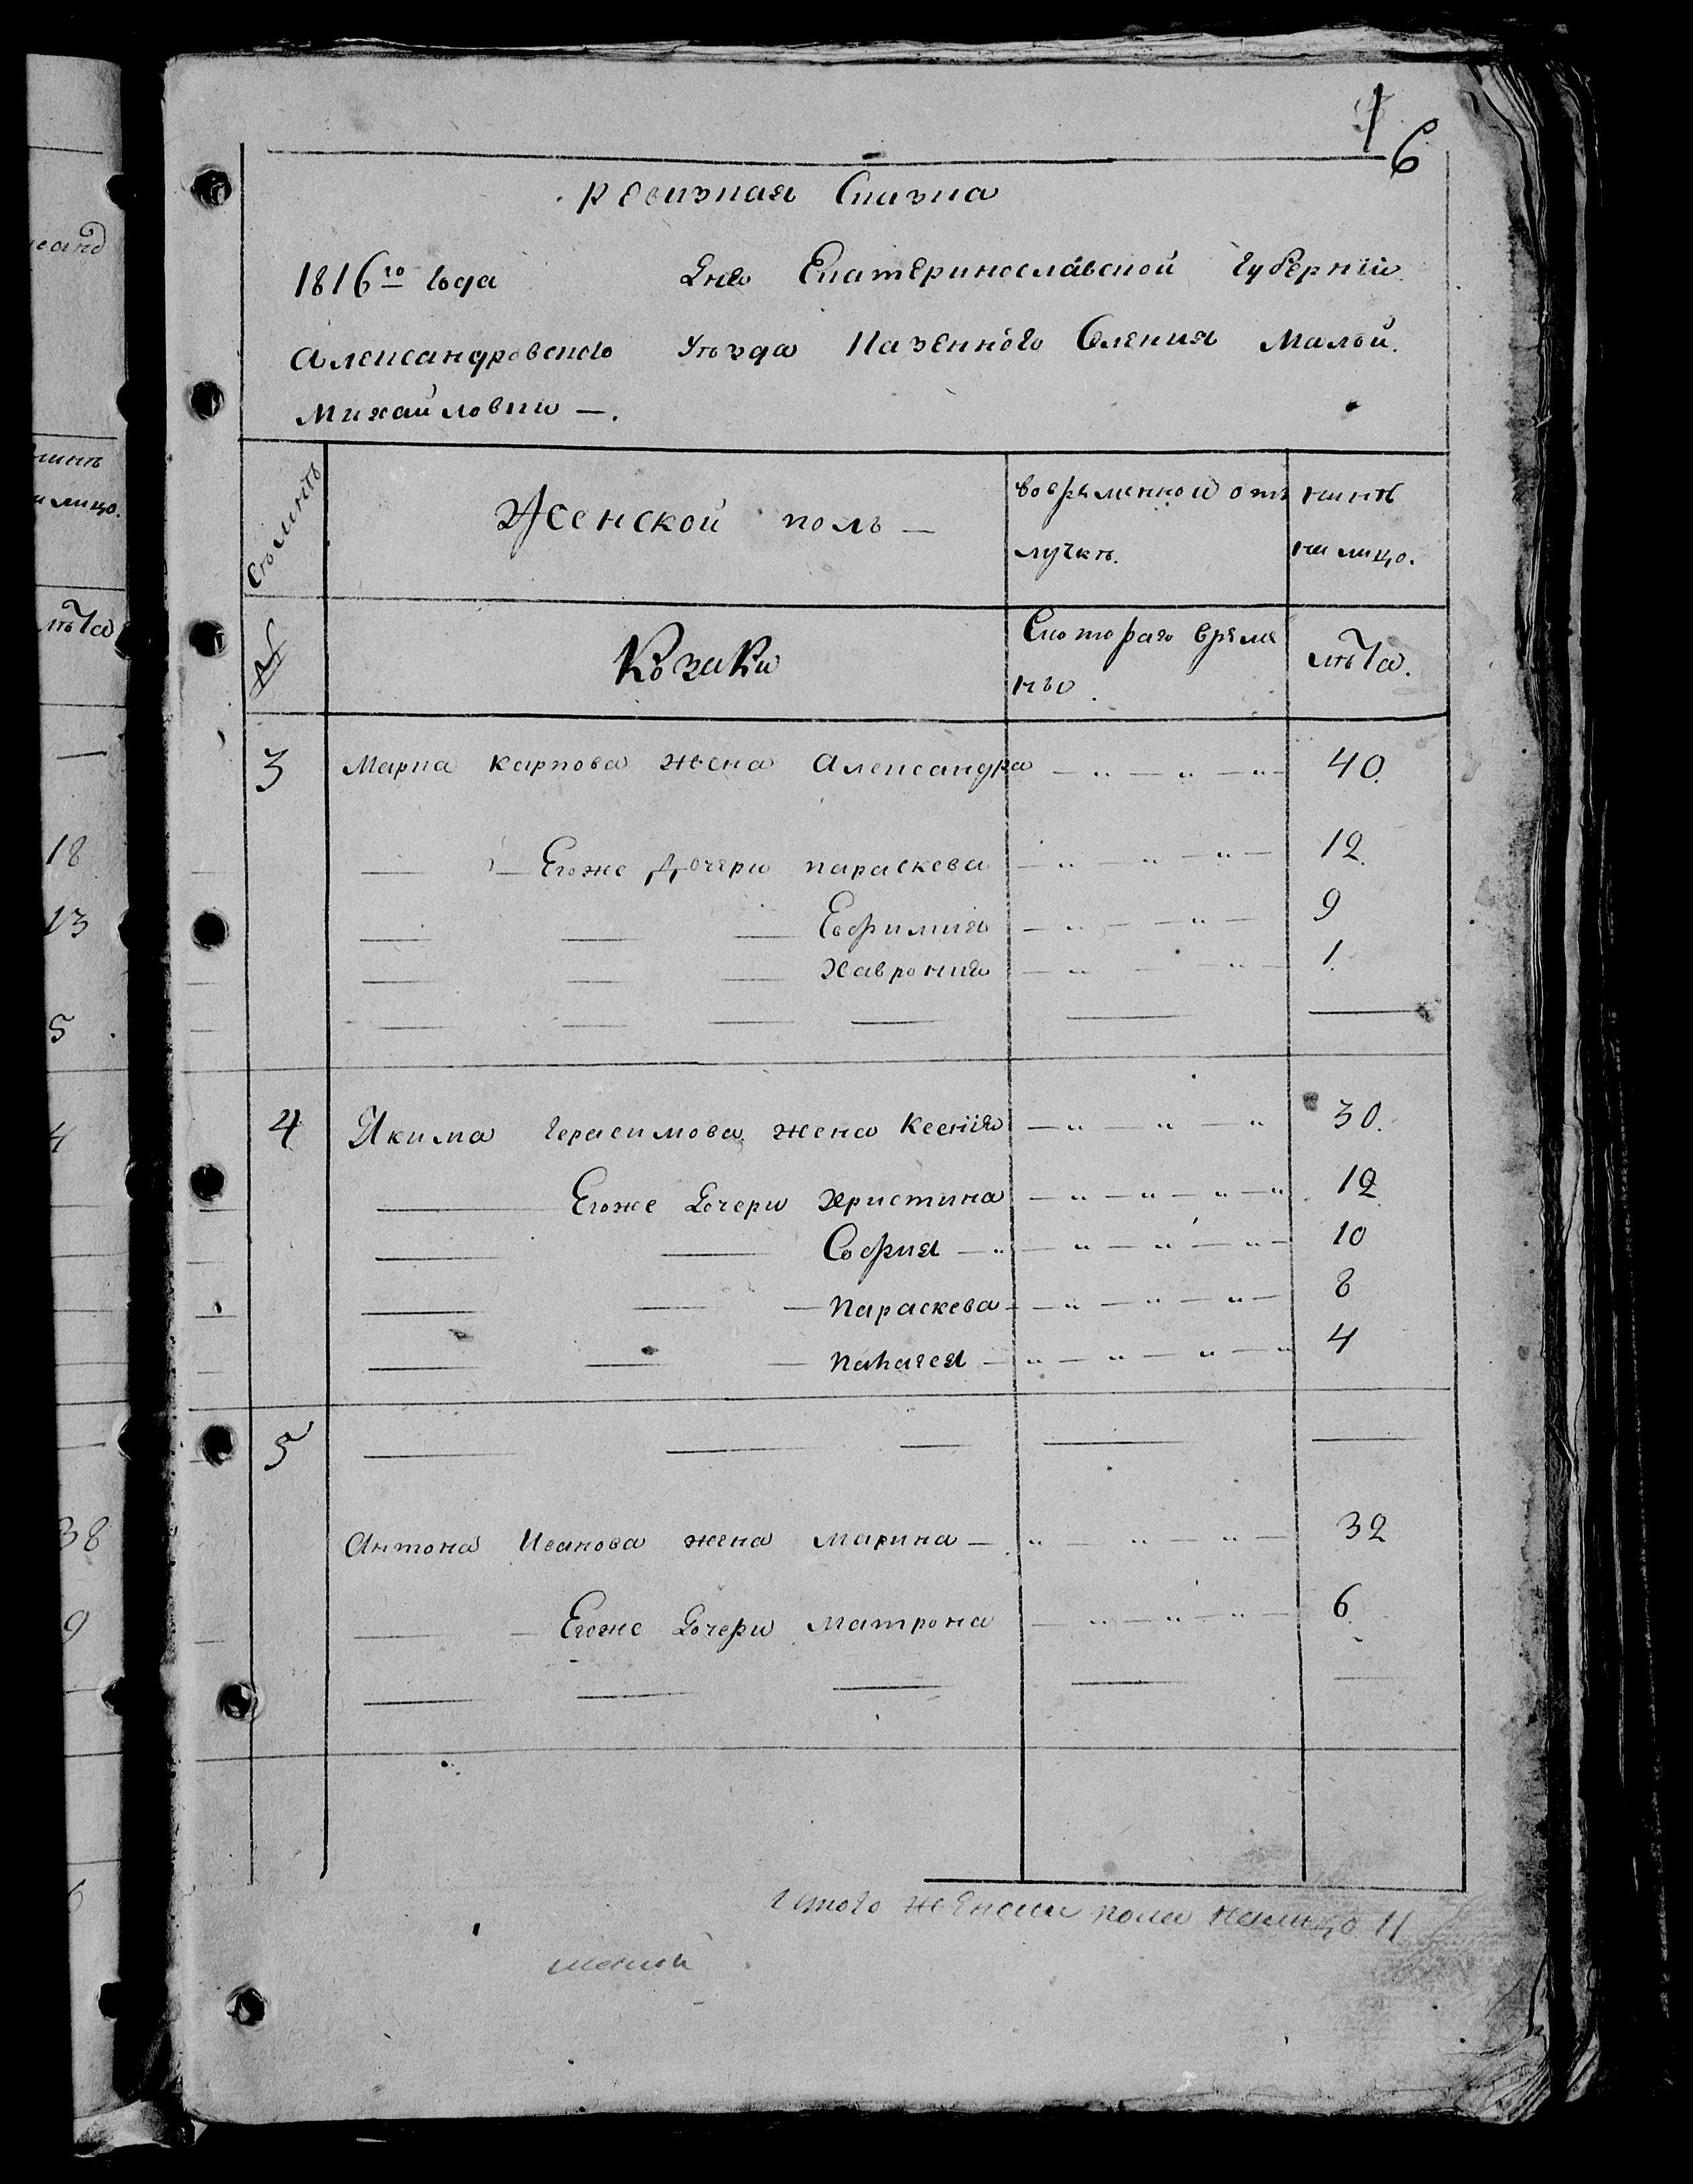 6
Ревизная Сказка
1816го года Дня Екатеринославской губернии
Александровского уезда Казенного Селения Малой
Михайловки —.
Семьи
Женской поль —
во временной от
лучке.
ныне
на лицо.
№
Козаки
С которого време
ни.
лѣта.
3 Марка Карпова жена Александра 40.
Егоже Дочери параскева 12.
Ефимия 9
Хаврония 1.
4 Якима Герасимова жена Ксения 30.
Егоже Дочери Христина 12
София 10
параскева 8
пелагея 4
5
Антона Иванова жена Марина — 32
Егоже Дочери Матрона 6.
Итого женска пола налицо 11
18
13
5
4
38
9
лѣта